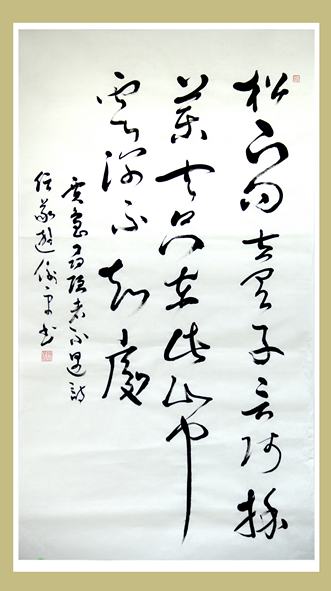 松下問童子言師採
藥去只在此山中
雲深不知處
賈島尋隱者不遇詩
書